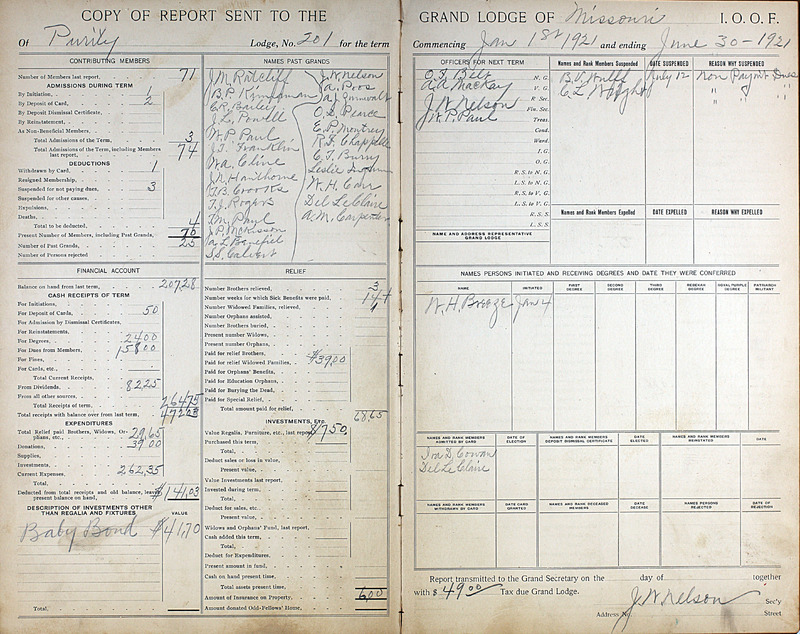 COPY OF REPORT SENT TO THE
Of Purity Lodge, No. 201 for the term
CONTRIBUTING MEMBERS
Number of Members last report, 71
ADMISSIONS DURING TERM
By Initiation, 1
By Deposit of Card, 2
By Deposit Dismissal Certificate,
By Reinstatement,
As Non-Beneficial Members,
Total Admissions of the Term, 3
Total Admissions of the Term, including Members last report, 74
DEDUCTIONS
Withdrawn by Card, 1
Resigned Membership,
Suspended for not paying dues, 3
Suspended for other causes,
Expulsions,
Deaths,
Total to be deducted, 4
Present Number of Members, including Past Grands, 70
Number of Past Grands, 25
Number of Persons rejected
NAMES PAST GRANDS
J. M. Ratcliff
B. P. Kingman
C. R. Bailey
J. L. Powell
W. P. Paul
J. T. Franklin
Wa. Cline
J. N. Hawthorne
H. B. Crooks
T. J. Rogers
J. P. McKisson
S. S. Calvert
J. W. Nelson
A. Poos
A. J. Zumwalt
O. D. Pearce
E. P. Montrey
R. F. Chappell
C. T. Burry
Leslie
W. H. Carr
Del LeClaire
A. M. Carpenter
FINANCIAL ACCOUNT
Balance on hand from last term, 207.28
CASH RECEIPTS OF TERM
For Initiations,
For Deposit of Cards, .50
For Admission by Dismissal Certificates,
For Reinstatements,
For Degrees, 24.00
For Dues from Members, 158.00
For Fines,
For Cards, etc.,
Total Current Receipts,
From Dividends, 82.25
From all other sources,
Total Receipts of term, 264.75
Total receipts with balance over from last term, 472.03
EXPENDITURES
Total Relief paid Brothers, Widows, Orphans, etc., 29.65
Donations, 39.00
Supplies,
Investments,
Current Expenses, 262.35
Deducted from total receipts and old balance, leaves present balance on hand, $141.03
DESCRIPTION OF INVESTMENTS OTHER THAN REGALIA AND FIXTURES VALUE
Baby Bond $41.70
Total,
RELIEF
Number Brothers relieved, 3
Number weeks for which Sick Benefits were paid, 14
Number Widowed Families, relieved,
Number Orphans assisted,
Number Brothers buried,
Present number Widows,
Present number Orphans,
Paid for relief Brothers,
Paid for relief Widowed Families, $39.00
Paid for Orphans' Benefits,
Paid for Education Orphans,
Paid for Burying the Dead,
Paid for Special Relief,
Total amount paid for relief, 68.65
INVESTMENTS, Etc.
Value Regalia, Furniture, etc., last report, $750
Purchased this term,
Total,
Deduct sales or loss in value,
Present value,
Value Investments last report,
Invested during term,
Total,
Deduct for sales, etc.,
Present value,
Widows and Orphans' Fund, last report,
Cash added this term,
Total,
Deduct for Expenditures,
Present amount in fund,
Cash on hand present time,
Total assets present time,
Amount of Insurance on Property, 600
Amount donated Odd-Fellows' Home,
GRAND LODGE OF Missouri I. O. O. F.
Commencing Jan 1st 1921 and ending June 30 - 1921
OFFICERS FOR NEXT TERM
O. T. Belt N. G.
A. A. Mackay V. G.
J. W. Nelson R. Sec.
Fin. Sec.
W. P. Paul Treas.
Cond.
Ward.
I. G.
O. G.
R. S. to N. G.
L. S. to N. G.
R. S. to V. G.
L. S. to V. G.
R. S. S.
L. S. S.
NAME AND ADDRESS REPRESENTATIVE GRAND LODGE
Names and Rank Members Suspended DATE SUSPENDED REASON WHY SUSPENDED
July 12 Non Paym't Dues
C. L. Wright " " "
Names and Rank Members Expelled DATE EXPELLED REASON WHY EXPELLED
NAMES PERSONS INITIATED AND RECEIVING DEGREES AND DATE THEY WERE CONFERRED
NAME INITIATED FIRST DEGREE SECOND DEGREE THIRD DEGREE REBEKAH DEGREE ROYAL PURPLE DEGREE PATRIARCH MILITANT
W. H. Breeze Jan 4
NAMES AND RANK MEMBERS ADMITTED BY CARD DATE OF ELECTION NAMES AND RANK MEMBERS DEPOSIT DISMISSAL CERTIFICATE DATE ELECTED NAMES AND RANK MEMBERS REINSTATED DATE
Ira D. Cowan
Del LeClaire
NAMES AND RANK MEMBERS WITHDRAWN BY CARD DATE CARD GRANTED NAMES AND RANK DECEASED MEMBERS DATE DECEASE NAMES PERSONS REJECTED DATE OF REJECTION
Report transmitted to the Grand Secretary on the day of together
with $ 49.00 Tax due Grand Lodge.
J. W. Nelson Sec'y
Address No. Street